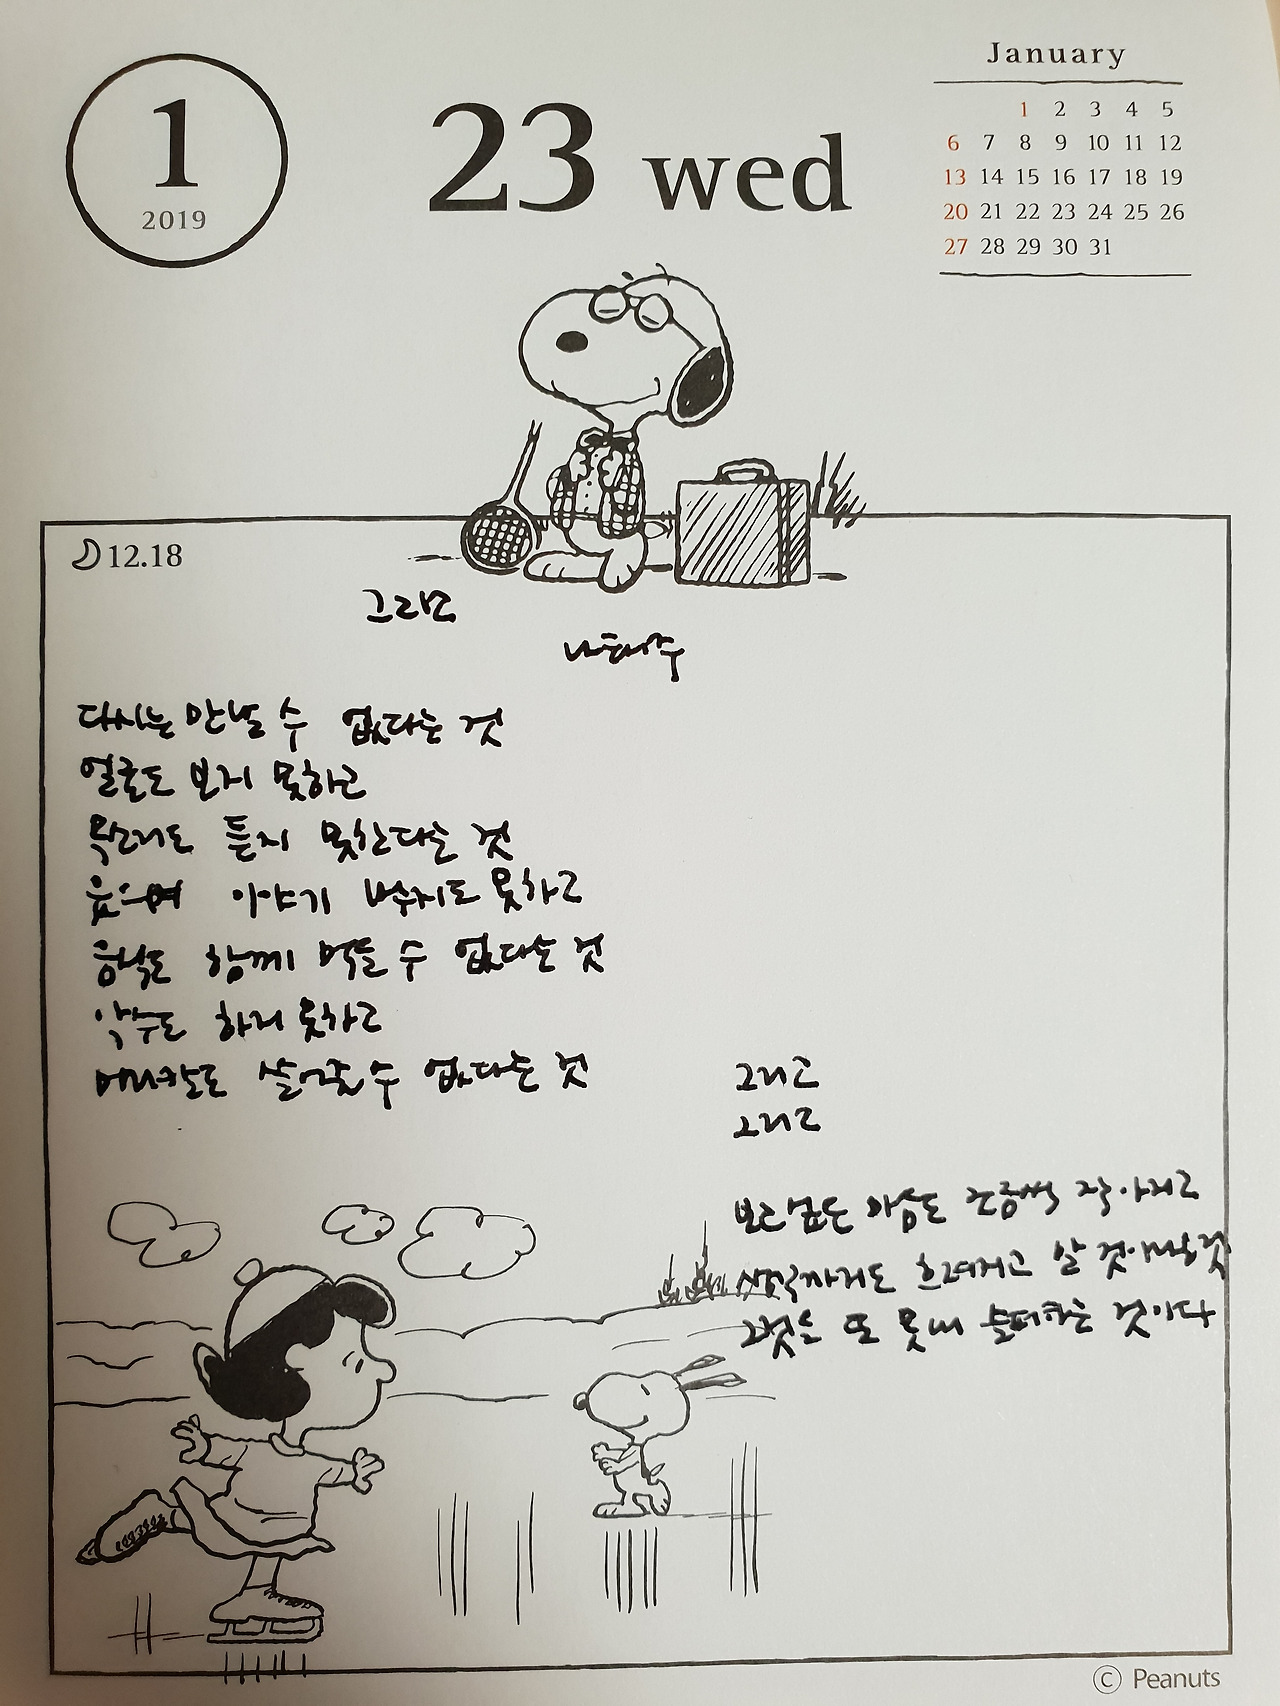 1
2019
23 wed
January
1 2 3 4 5
6 7 8 9 10 11 12
13 14 15 16 17 18 19
20 21 22 23 24 25 26
27 28 29 30 31
12.18
그리움
나태주
다시는 만날 수 없다는 것
얼굴도 보지 못하고
목소리도 듣지 못한다는 것
웃으며 이야기 나누지도 못하고
음식도 함께 먹을 수 없다는 것
악수도 하지 못하고
머리칼도 쓸어줄 수 없다는 것
그리고
그리고
보고 싶은 마음도 조금씩 작아지고
생각까지도 흐려지고 말 것이라는 것
그것을 또 못내 슬퍼하는 것이다
© Peanuts